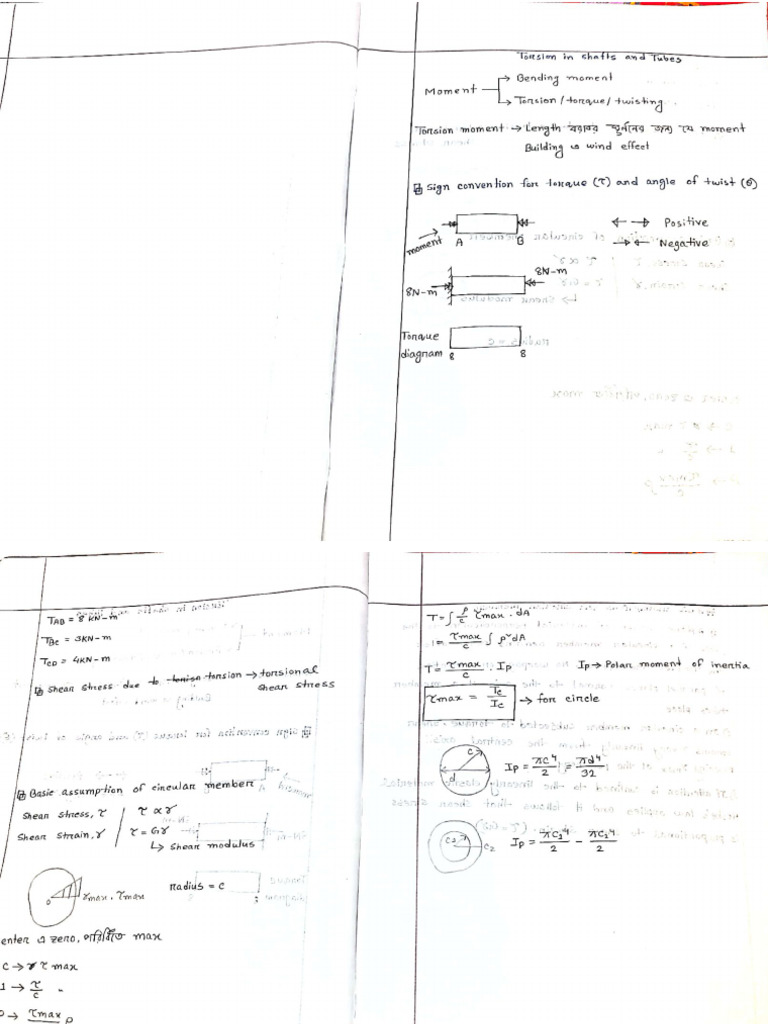 Torsion in shafts and Tubes
Moment
Bending moment
Torsion/torque/twisting
Torsion moment → Length বরাবর ঘুর্ননের জন্য যে moment
Building এ wind effect
Sign convention for torque (τ) and angle of twist (θ)
moment
A B
←→ Positive
→← Negative
8N-m
8N-m
Torque
diagram
8 8
T_AB = 8 KN-m
T_BC = 3KN-m
T_CD = 4KN-m
Shear stress due to torsion → torsional
shear stress
Basic assumption of circular member
Shear stress, τ
Shear strain, γ
τ ∝ γ
τ = Gγ
↳ Shear modulus
0
γmax, τmax
radius = c
enter এ zero, পরিধিতে max
c → τ max
1 → τ/c
→ τmax/c ρ
T = ∫ ρ/c τmax . dA
= τmax/c ∫ ρ² dA
T = τmax/c . Ip
Ip → Polar moment of inertia
τmax = Tc/Ic → for circle
c
d
Ip = πc⁴/2 = πd⁴/32
c₂
Ip = πc₂⁴/2 - πc₁⁴/2